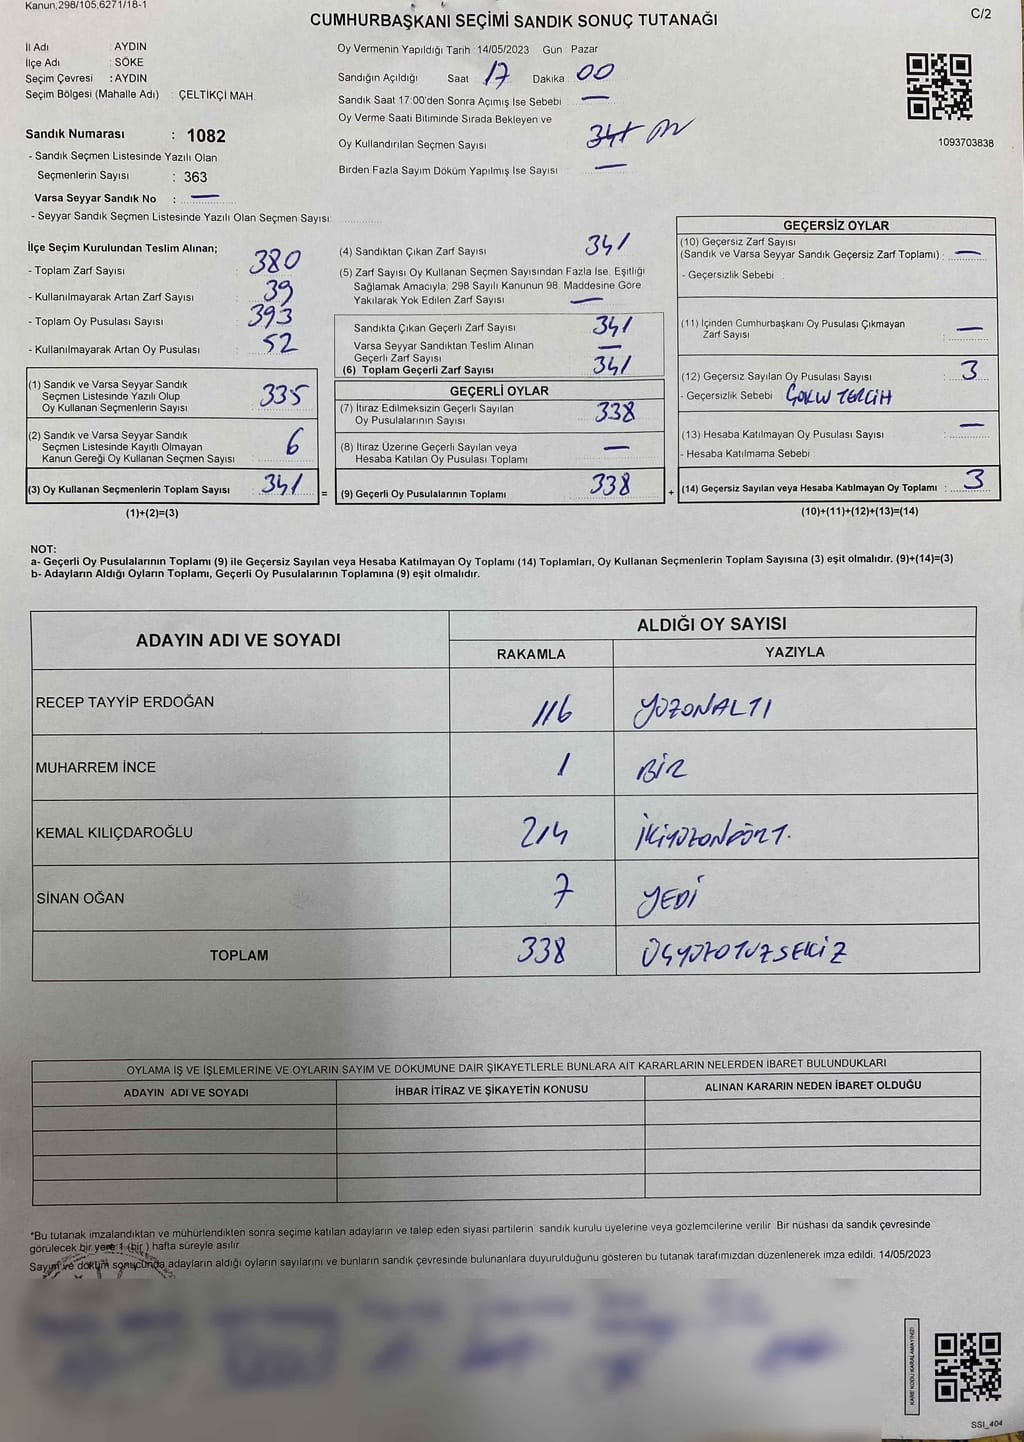 Kanun,298/105,6271/18-1
C/2
CUMHURBAŞKANI SEÇİMİ SANDIK SONUÇ TUTANAĞI
İl Adı : AYDIN
İlçe Adı : SÖKE
Seçim Çevresi : AYDIN
Seçim Bölgesi (Mahalle Adı) : ÇELTİKÇİ MAH.
Sandık Numarası : 1082
- Sandık Seçmen Listesinde Yazılı Olan
Seçmenlerin Sayısı : 363
Varsa Seyyar Sandık No : —
- Seyyar Sandık Seçmen Listesinde Yazılı Olan Seçmen Sayısı:
Oy Vermenin Yapıldığı Tarih : 14/05/2023 Gün : Pazar
Sandığın Açıldığı Saat 17 Dakika : 00
Sandık Saat 17:00'den Sonra Açımış İse Sebebi : —
Oy Verme Saati Bitiminde Sırada Bekleyen ve
Oy Kullandırılan Seçmen Sayısı : 341
Birden Fazla Sayım Döküm Yapılmış İse Sayısı : —
1093703838
İlçe Seçim Kurulundan Teslim Alınan;
- Toplam Zarf Sayısı : 380
- Kullanılmayarak Artan Zarf Sayısı : 39
- Toplam Oy Pusulası Sayısı : 393
- Kullanılmayarak Artan Oy Pusulası : 52
(1) Sandık ve Varsa Seyyar Sandık
Seçmen Listesinde Yazılı Olup
Oy Kullanan Seçmenlerin Sayısı : 335
(2) Sandık ve Varsa Seyyar Sandık
Seçmen Listesinde Kayıtlı Olmayan
Kanun Gereği Oy Kullanan Seçmen Sayısı : 6
(3) Oy Kullanan Seçmenlerin Toplam Sayısı : 341
(1)+(2)=(3)
=
(4) Sandıktan Çıkan Zarf Sayısı : 341
(5) Zarf Sayısı Oy Kullanan Seçmen Sayısından Fazla İse, Eşitliği
Sağlamak Amacıyla, 298 Sayılı Kanunun 98. Maddesine Göre
Yakılarak Yok Edilen Zarf Sayısı : —
Sandıkta Çıkan Geçerli Zarf Sayısı : 341
Varsa Seyyar Sandıktan Teslim Alınan
Geçerli Zarf Sayısı : —
(6) Toplam Geçerli Zarf Sayısı : 341
GEÇERLİ OYLAR
(7) İtiraz Edilmeksizin Geçerli Sayılan
Oy Pusulalarının Sayısı : 338
(8) İtiraz Üzerine Geçerli Sayılan veya
Hesaba Katılan Oy Pusulası Toplamı : —
(9) Geçerli Oy Pusulalarının Toplamı : 338
+
GEÇERSİZ OYLAR
(10) Geçersiz Zarf Sayısı
(Sandık ve Varsa Seyyar Sandık Geçersiz Zarf Toplamı) : —
- Geçersizlik Sebebi :
(11) İçinden Cumhurbaşkanı Oy Pusulası Çıkmayan
Zarf Sayısı : —
(12) Geçersiz Sayılan Oy Pusulası Sayısı : 3
- Geçersizlik Sebebi : ÇOKLU TERCİH
(13) Hesaba Katılmayan Oy Pusulası Sayısı : —
- Hesaba Katılmama Sebebi :
(14) Geçersiz Sayılan veya Hesaba Katılmayan Oy Toplamı : 3
(10)+(11)+(12)+(13)=(14)
NOT:
a- Geçerli Oy Pusulalarının Toplamı (9) ile Geçersiz Sayılan veya Hesaba Katılmayan Oy Toplamı (14) Toplamları, Oy Kullanan Seçmenlerin Toplam Sayısına (3) eşit olmalıdır. (9)+(14)=(3)
b- Adayların Aldığı Oyların Toplamı, Geçerli Oy Pusulalarının Toplamına (9) eşit olmalıdır.
ADAYIN ADI VE SOYADI
ALDIĞI OY SAYISI
RAKAMLA YAZIYLA
RECEP TAYYİP ERDOĞAN 116 YÜZONALTI
MUHARREM İNCE 1 BİR
KEMAL KILIÇDAROĞLU 214 İKİYÜZONDÖRT.
SİNAN OĞAN 7 YEDİ
TOPLAM 338 ÜÇYÜZOTUZSEKİZ
OYLAMA İŞ VE İŞLEMLERİNE VE OYLARIN SAYIM VE DÖKÜMÜNE DAİR ŞİKAYETLERLE BUNLARA AİT KARARLARIN NELERDEN İBARET BULUNDUKLARI
ADAYIN ADI VE SOYADI İHBAR İTİRAZ VE ŞİKAYETİN KONUSU ALINAN KARARIN NEDEN İBARET OLDUĞU
*Bu tutanak imzalandıktan ve mühürlendikten sonra seçime katılan adayların ve talep eden siyasi partilerin sandık kurulu üyelerine veya gözlemcilerine verilir. Bir nüshası da sandık çevresinde
görülecek bir yere 1 (bir ) hafta süreyle asılır.
Sayım ve döküm sonucunda adayların aldığı oyların sayılarını ve bunların sandık çevresinde bulunanlara duyurulduğunu gösteren bu tutanak tarafımızdan düzenlenerek imza edildi. 14/05/2023
KARE KODU KARALAMAYINIZ!
SSI_404